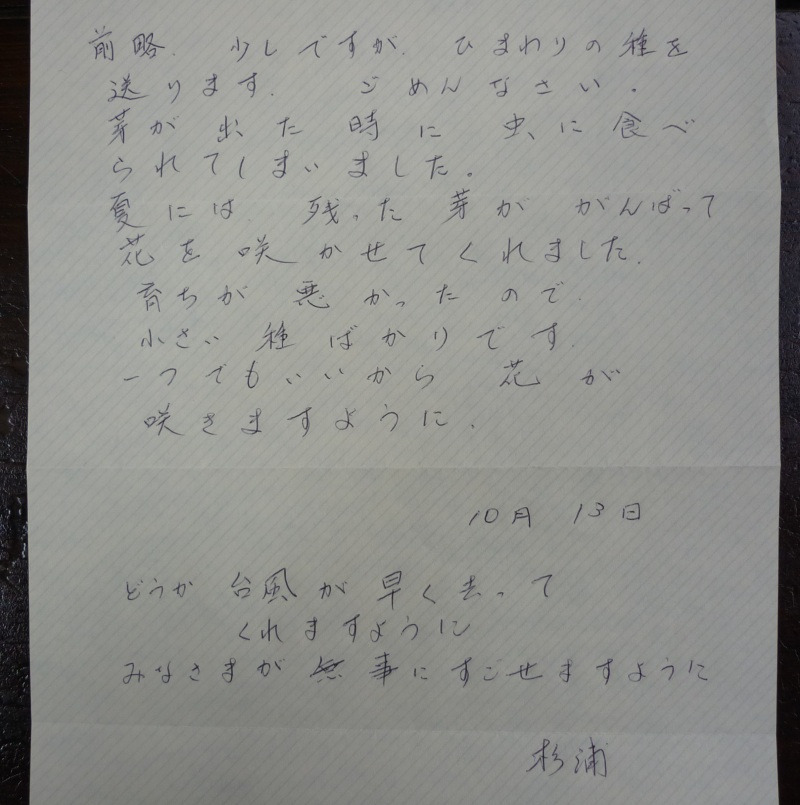 前略. 少しですが. ひまわりの種を
送ります. ごめんなさい.
芽が出た時に虫に食べ
られてしまいました。
夏には 残った芽が がんばって
花を咲かせてくれました.
育ちが悪かったので.
小さい種ばかりです.
一つでもいいから 花が
咲きますように.
10月 13日
どうか台風が早く去って
くれますように
みなさまが無事にすごせますように
杉浦